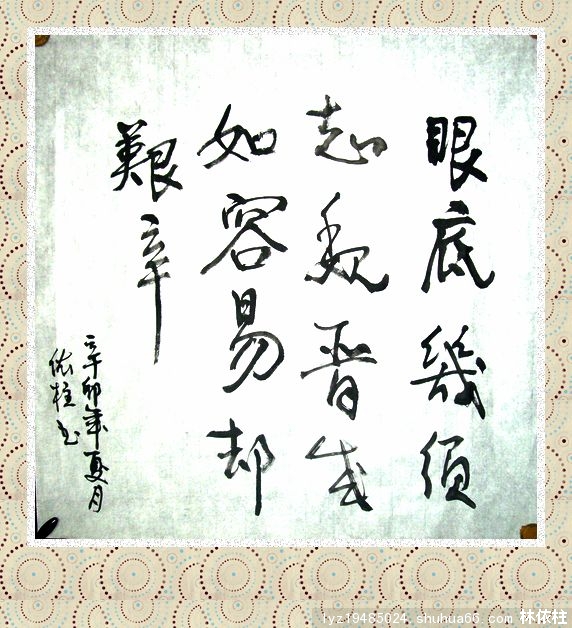 眼底幾須
超魏晉成
如容易却
艱辛
辛卯年夏月
依柱书
lyz19485024 shuhua66.com 林依柱